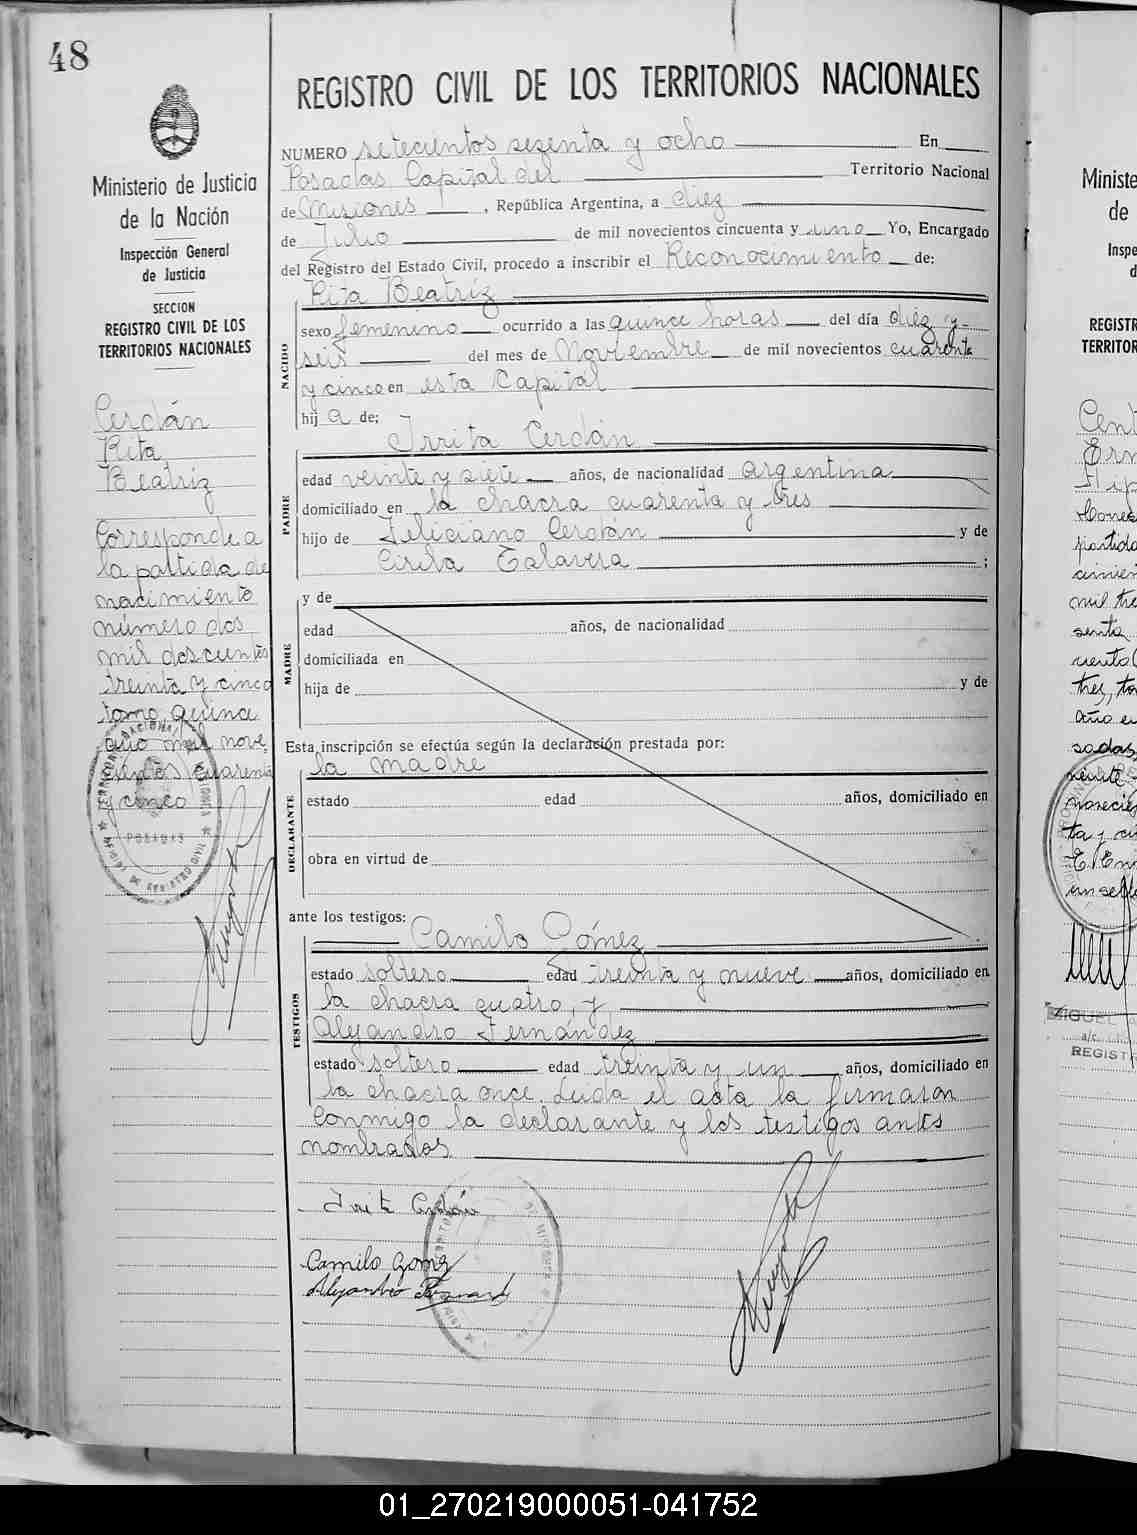 48
REGISTRO CIVIL DE LOS TERRITORIOS NACIONALES
Ministerio de Justicia
de la Nación
Inspección General
de Justicia
SECCION
REGISTRO CIVIL DE LOS
TERRITORIOS NACIONALES
Cerdán
Rita
Beatriz
Corresponde a
la partida de
nacimiento
número dos
mil doscientos
treinta y cinco
tomo quince
año mil nove
cientos cuarenta
y cinco
POSADAS
NUMERO setecientos sesenta y ocho En
Posadas Capital del Territorio Nacional
de Misiones, República Argentina, a diez
de Julio de mil novecientos cincuenta y uno Yo, Encargado
del Registro del Estado Civil, procedo a inscribir el Reconocimiento de:
Rita Beatriz
NACIDO
sexo femenino ocurrido a las quince horas del día diez y
seis del mes de Noviembre de mil novecientos cuarenta
y cinco en esta Capital
hij a de:
Irrita Cerdán
PADRE
edad veinte y siete años, de nacionalidad argentina
domiciliado en la chacra cuarenta y tres
hijo de Feliciano Cerdán y de
Cirila Talavera ;
MADRE
y de
edad años, de nacionalidad
domiciliada en
hija de y de
Esta inscripción se efectúa según la declaración prestada por:
la madre
DECLARANTE
estado edad años, domiciliado en
obra en virtud de
ante los testigos:
Camilo Gómez
TESTIGOS
estado soltero edad treinta y nueve años, domiciliado en
la chacra cuatro, y
Alejandro Fernández
estado soltero edad treinta y un años, domiciliado en
la chacra once. Leida el acta la firmaron
conmigo la declarante y los testigos antes
nombrados
Irrita Cerdán
Camilo Gomez
Alejandro
Ministe
de
Inspe
d
REGISTR
TERRITOR
Cent
tres, to
año e
sadas
ta y ci
MIGUEL
a/c.
REGIST
01_270219000051-041752